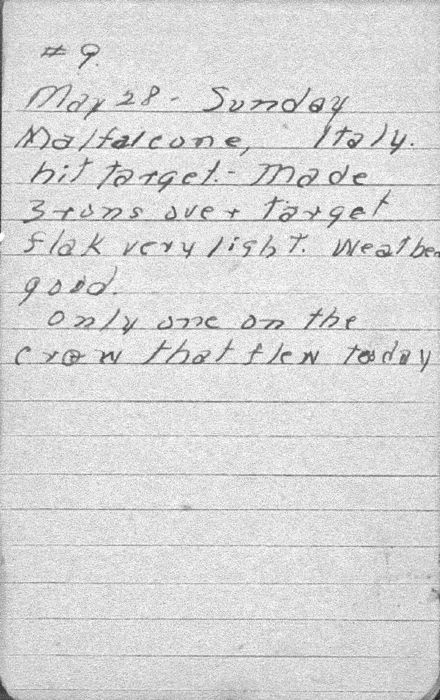 # 9.
May 28 - Sunday
Malfalcone, Italy.
hit target. - Made
3 runs over target
flak very light. Weather
good.
only one on the
crew that flew today